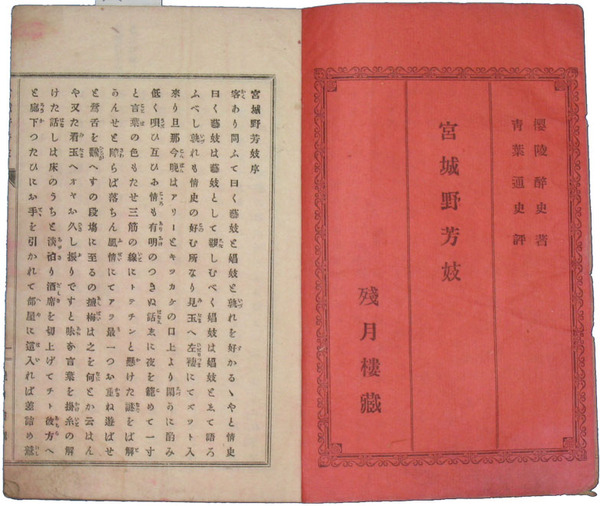 櫻陵醉史著
青葉通史評
宮城野芳妓
殘月樓藏
宮城野芳妓序
客あり問ふて曰く藝妓と娼妓と孰れを好かるゝやと情史
曰く藝妓は藝妓として親しむべく娼妓は娼妓とゑて語ろ
ふべし孰れも情史の好む所なり見玉へ左褄にてズット入
來り旦那今晩はアリーとキッカケの口上より
低く唄ひ互ひみ情も有明のつきぬ話ゑに夜を籠めて一寸
と言葉の色もたせ三筋の線にトッチンと懸けた謎をば解
らんせと 落ちん風情にてアラ最一つお重ね遊ばせ
と鶯舌を飜へすの段塲に至るの塩梅は之を何とか云はん
や又た看玉へオヤお久し振りですと 言葉を掛糸の解
けた話しは床のうちと淡泊り酒席を切上げてチト彼方へ
と廊下つたひにお手を引かれて部屋に這入れば差詰め